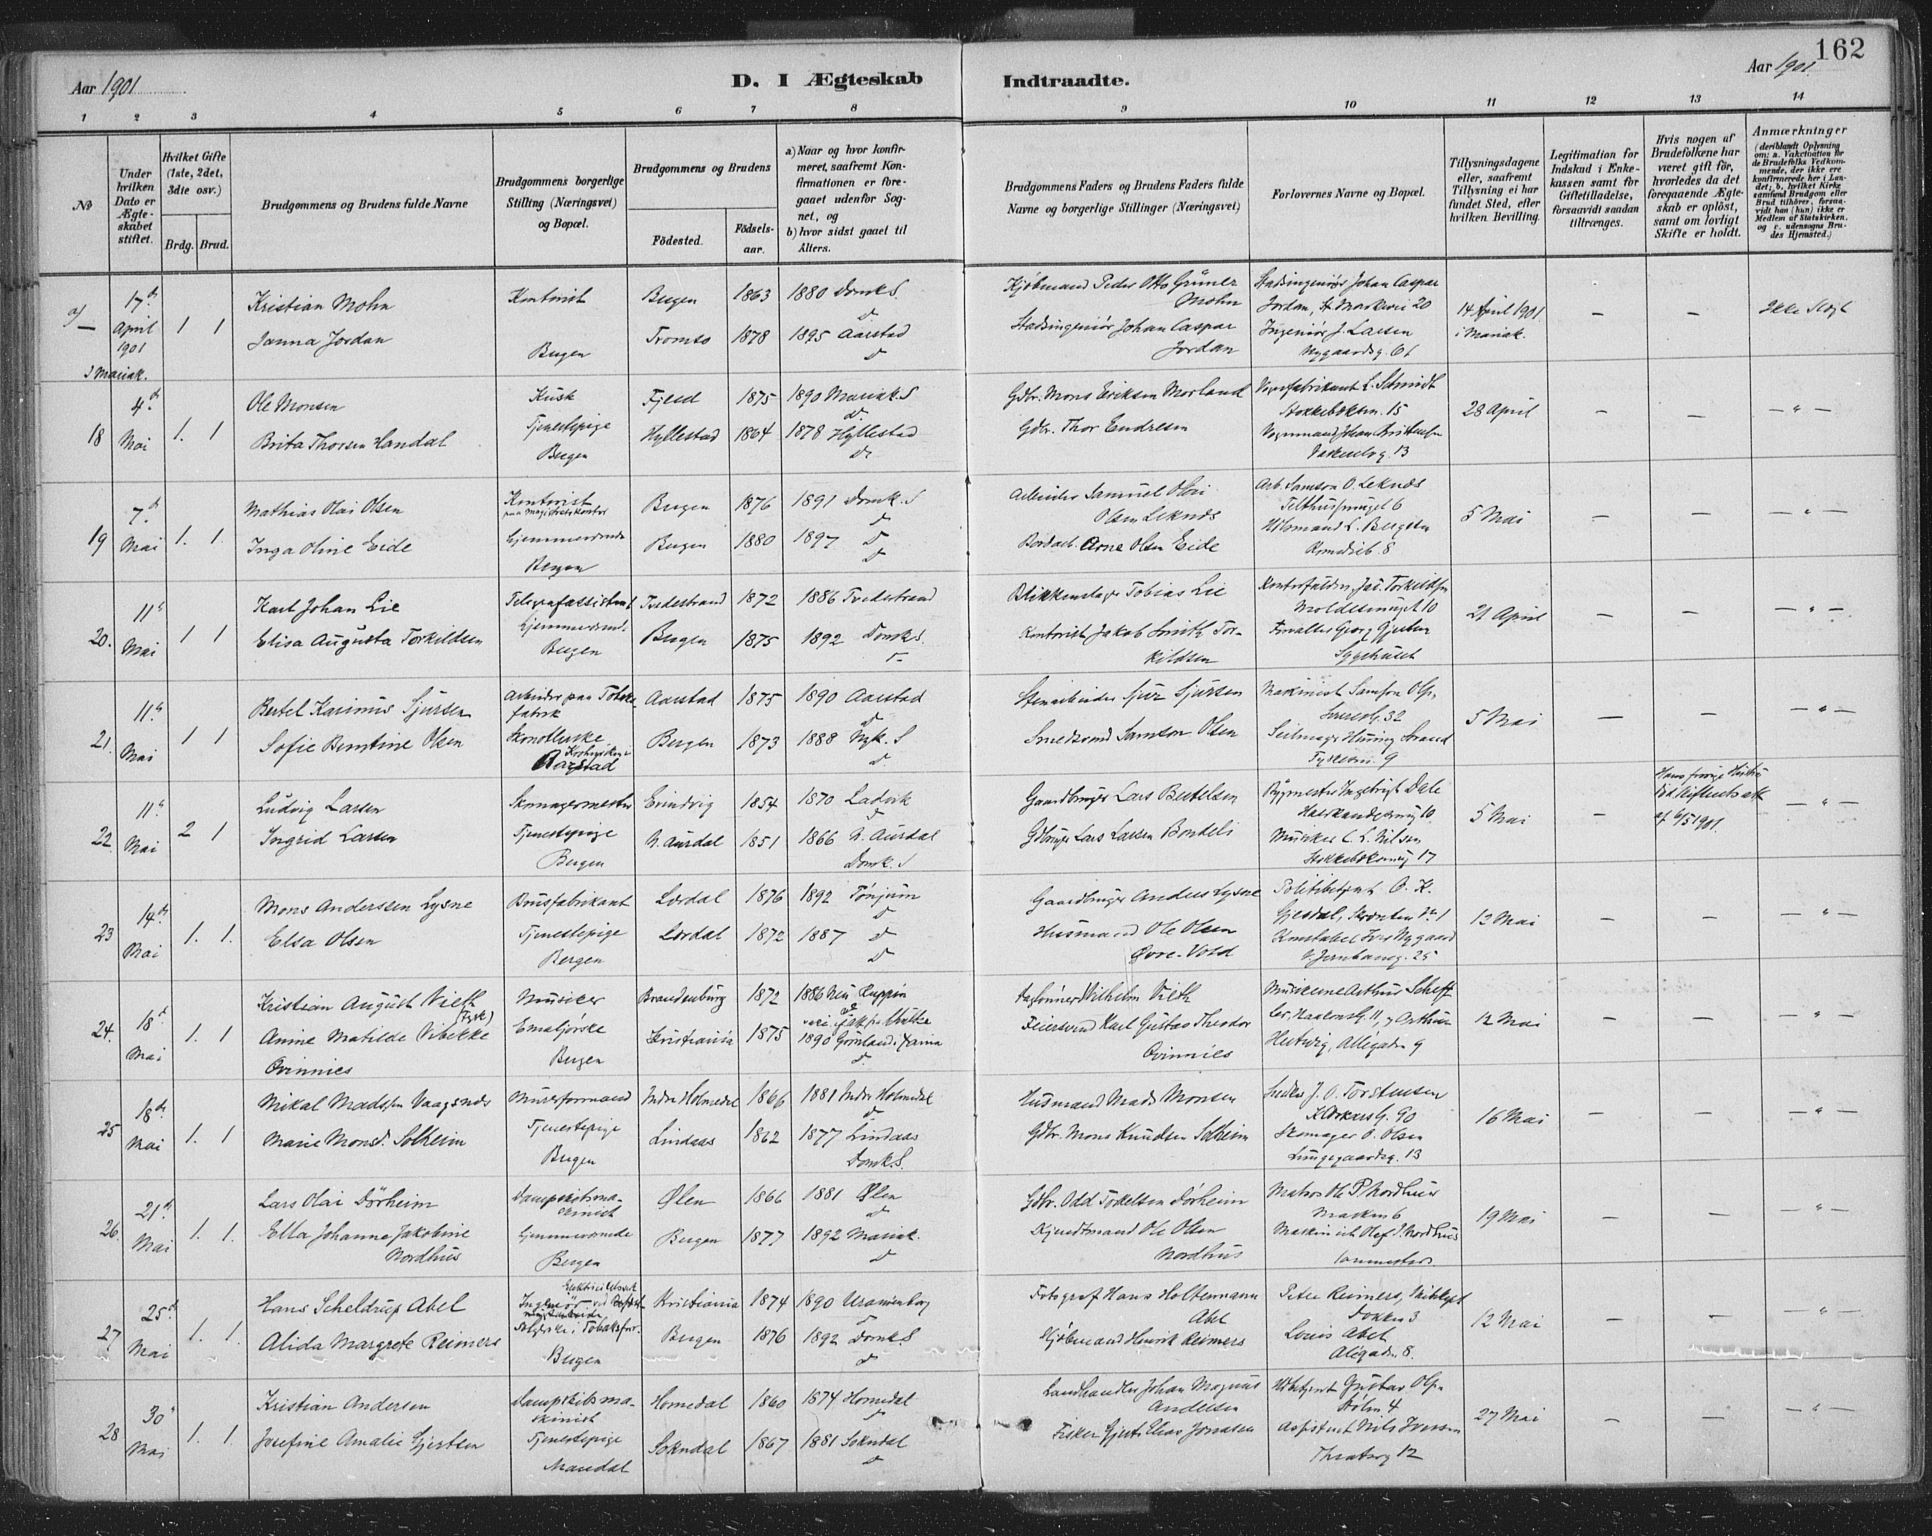 162
Aar 1901
D. I Ægteskab
Indtraadte.
Aar 1901
1 2 3 4 5 6 7 8 9 10 11 12 13 14
No
Under hvilken Dato er Ægteskabet stiftet.
Hvilket Gifte (1ste, 2det, 3dte osv.)
Brdg. Brud.
Brudgommens og Brudens fulde Navne
Brudgommens borgerlige Stilling (Næringsvei) og Bopæl.
Brudgommens og Brudens
Fødested.
Fødselsaar.
a) Naar og hvor konfirmeret, saafremt Konfirmationen er foregaaet udenfor Sognet, og
b) hvor sidst gaaet til Alters.
Brudgommens Faders og Brudens Faders fulde Navne og borgerlige Stillinger (Næringsvei)
Forlovernes Navne og Bopæl.
Tillysningsdagene eller, saafremt Tillysning ei har fundet Sted, efter hvilken Bevilling.
Legitimation for Indskud i Enkekassen samt for Giftetilladelse, forsaavidt saadan tiltrænges.
Hvis nogen af Brudefolkene har været gift før, hvorledes da det foregaaende Ægteskab er opløst, samt om lovligt Skifte er holdt.
Anmærkninger
(deriblandt Oplysning om: a. Vakcination for de Brudefolks Vedkommende, der ikke ere konfirmerede her i Landet; b. hvilket Kirkesamfund Brudgom eller Brud tilhører, forsaavidt han (hun) ikke er Medlem af Statskirken, og c. udensogns Brudes Hjemsted.)
a) — 17de April 1901 i Mariak. 1 1
Kristian Mohn Kontorist Bergen 1863 1880 Domk.S. Kjøbmand Peder Otto Grüner Mohn Stadsingeniør Johan Caspar Jordan, St Markevei 20 14 April 1901 i Mariak. — — Ikke Slægt
Janna Jordan Bergen Tromsø 1878 1895 Aarstad Stadsingeniør Johan Caspar Jordan Ingeniør J. Larsen Nygaardsg. 61
18 4de Mai 1. 1
Ole Monsen Kusk Fjeld 1875 1890 Mariak.S Gdbr. Mons Eriksen Morland Vognfabrikant L. Schmidt 15 28 April — — — " —
Brita Thorsen Landal Tjenestepige Bergen Hyllestad 1864 1878 Hyllestad Gdbr. Thor Endresen Vognmand Johan Kristensen 13
19 7de Mai 1. 1.
Mathias Olai Olsen Kontorist paa Magistratskontor Bergen 1876 1891 Domk.S Arbeider Samuel Olai Olsen Leknes Arb. Samson O. Leknes 6 5 Mai — — — " —
Inga Oline Eide Hjemmeværende Bergen Bergen 1880 1897 Arne Olsen Eide L. Bergsen 8
20. 11te Mai 1 1
Karl Johan Lie Telegrafassistent Tvedestrand 1872 1886 Tvedestrand Blikkenslager Tobias Lie Jac. Torkildsen 10 21 April — — — " —
Elisa Augusta Torkildsen Hjemmeværende Bergen Bergen 1875 1892 Domk.S. Kontorist Jakob Smith Torkildsen Forvalter Georg Gjertsen Sygehuset
21. 11te Mai 1 1
Bertel Kasimus Sjursen Arbeider paa Tobaksfabrik Aarstad 1875 1890 Aarstad Stenarbeider Sjur Sjursen Maskinist Samson Olsen 32 5 Mai — — — " —
Sofie Berntine Olsen Aarstad Bergen 1873 1888 Nyk.S Smedsvend Samson Olsen Seilmager Strand 9
22 11te Mai 2 1
Ludvig Larsen Skomagermester Evindvig 1854 1870 Ladvik Gaardbruger Lars Bertelsen Bygmester Ingebrigt Dale 10 5 Mai — af 6/5 1901. — " —
Ingrid Larsen Tjenestepige Bergen N. Aurdal 1851 1866 N. Aurdal Domk.S Gdbruger Lars Larsen Bondeli Murer L. L. Nilsen 17
23 14de Mai 1. 1.
Mons Andersen Lysne Brusfabrikant Lærdal 1876 1892 Tønjum Gaardbruger Anders Lysne Politibetjent O. K. Gjesdal, Skansen No 1 12 Mai — — — " —
Elsa Olsen Tjenestepige Bergen Lærdal 1872 1887 Husmand Ole Olsen Øvre-Vold Konstabel Iver Nygaard 25
24. 18de Mai 1. 1
Kristian August Vieth (Tysk) Musiker Brandenburg 1872 1886 Neu Ruppin Vilhelm Vieth Musikerne Arthur Scheffler, Haakonsg. 11, og Arthur Hertwig, Allegaden 9 12 Mai — — — " —
Anine Matilde Vibekke Qvinnies Bergen Kristiania 1875 1890 Grønland Feiersvend Karl Gustav Theodor Qvinnies
25 18de Mai 1. 1
Mikal Madssen Vaagsnes Murerformand Indre Holmedal 1866 1881 Indre Holmedal Husmand Mads Monsen J. O. Torstensen 90 16 Mai — — — " —
Marie Monsd. Solheim Tjenestepige Bergen Lindaas 1862 1877 Lindaas Domk.S. Gdbr. Mons Knudsen Solheim Skomager O. Olsen Lungegaardsg. 13
26. 21de Mai 1. 1.
Lars Olai Dørheim Dampskibsmaskinist Ølen 1866 1881 Ølen Gdbr. Odd Torkelsen Dørheim Matros Ole P. Nordhus 6 19 Mai — — — " —
Ella Johanne Jakobine Nordhus Hjemmeværende Bergen Bergen 1877 1892 Mariak. Ole Olsen Nordhus Maskinist Olaf P. Nordhus
27 25de Mai 1. 1.
Hans Scheldrup Abel Ingeniør Kristiania 1874 1890 Uranienborg Fotograf Hans Holtermann Abel Peter Reimers, Dokken 3 12 Mai — — — " —
Alida Margrete Reimers Bergen Bergen 1876 1892 Domk.S. Kjøbmand Henrik Reimers Louis Abel Allegaden 8.
28 30te Mai 1. 1.
Kristian Andersen Dampskibsmaskinist Homedal 1860 1874 Homedal Landhandler Johan Magnus Andersen Gustav Olsen 4 27 Mai — — — " —
Josefine Amalie Gjertsen Tjenestepige Mandal Sokndal 1867 1881 Sokndal Fisker Gjert Elias Jonasen Assistent Nils Iversen 12